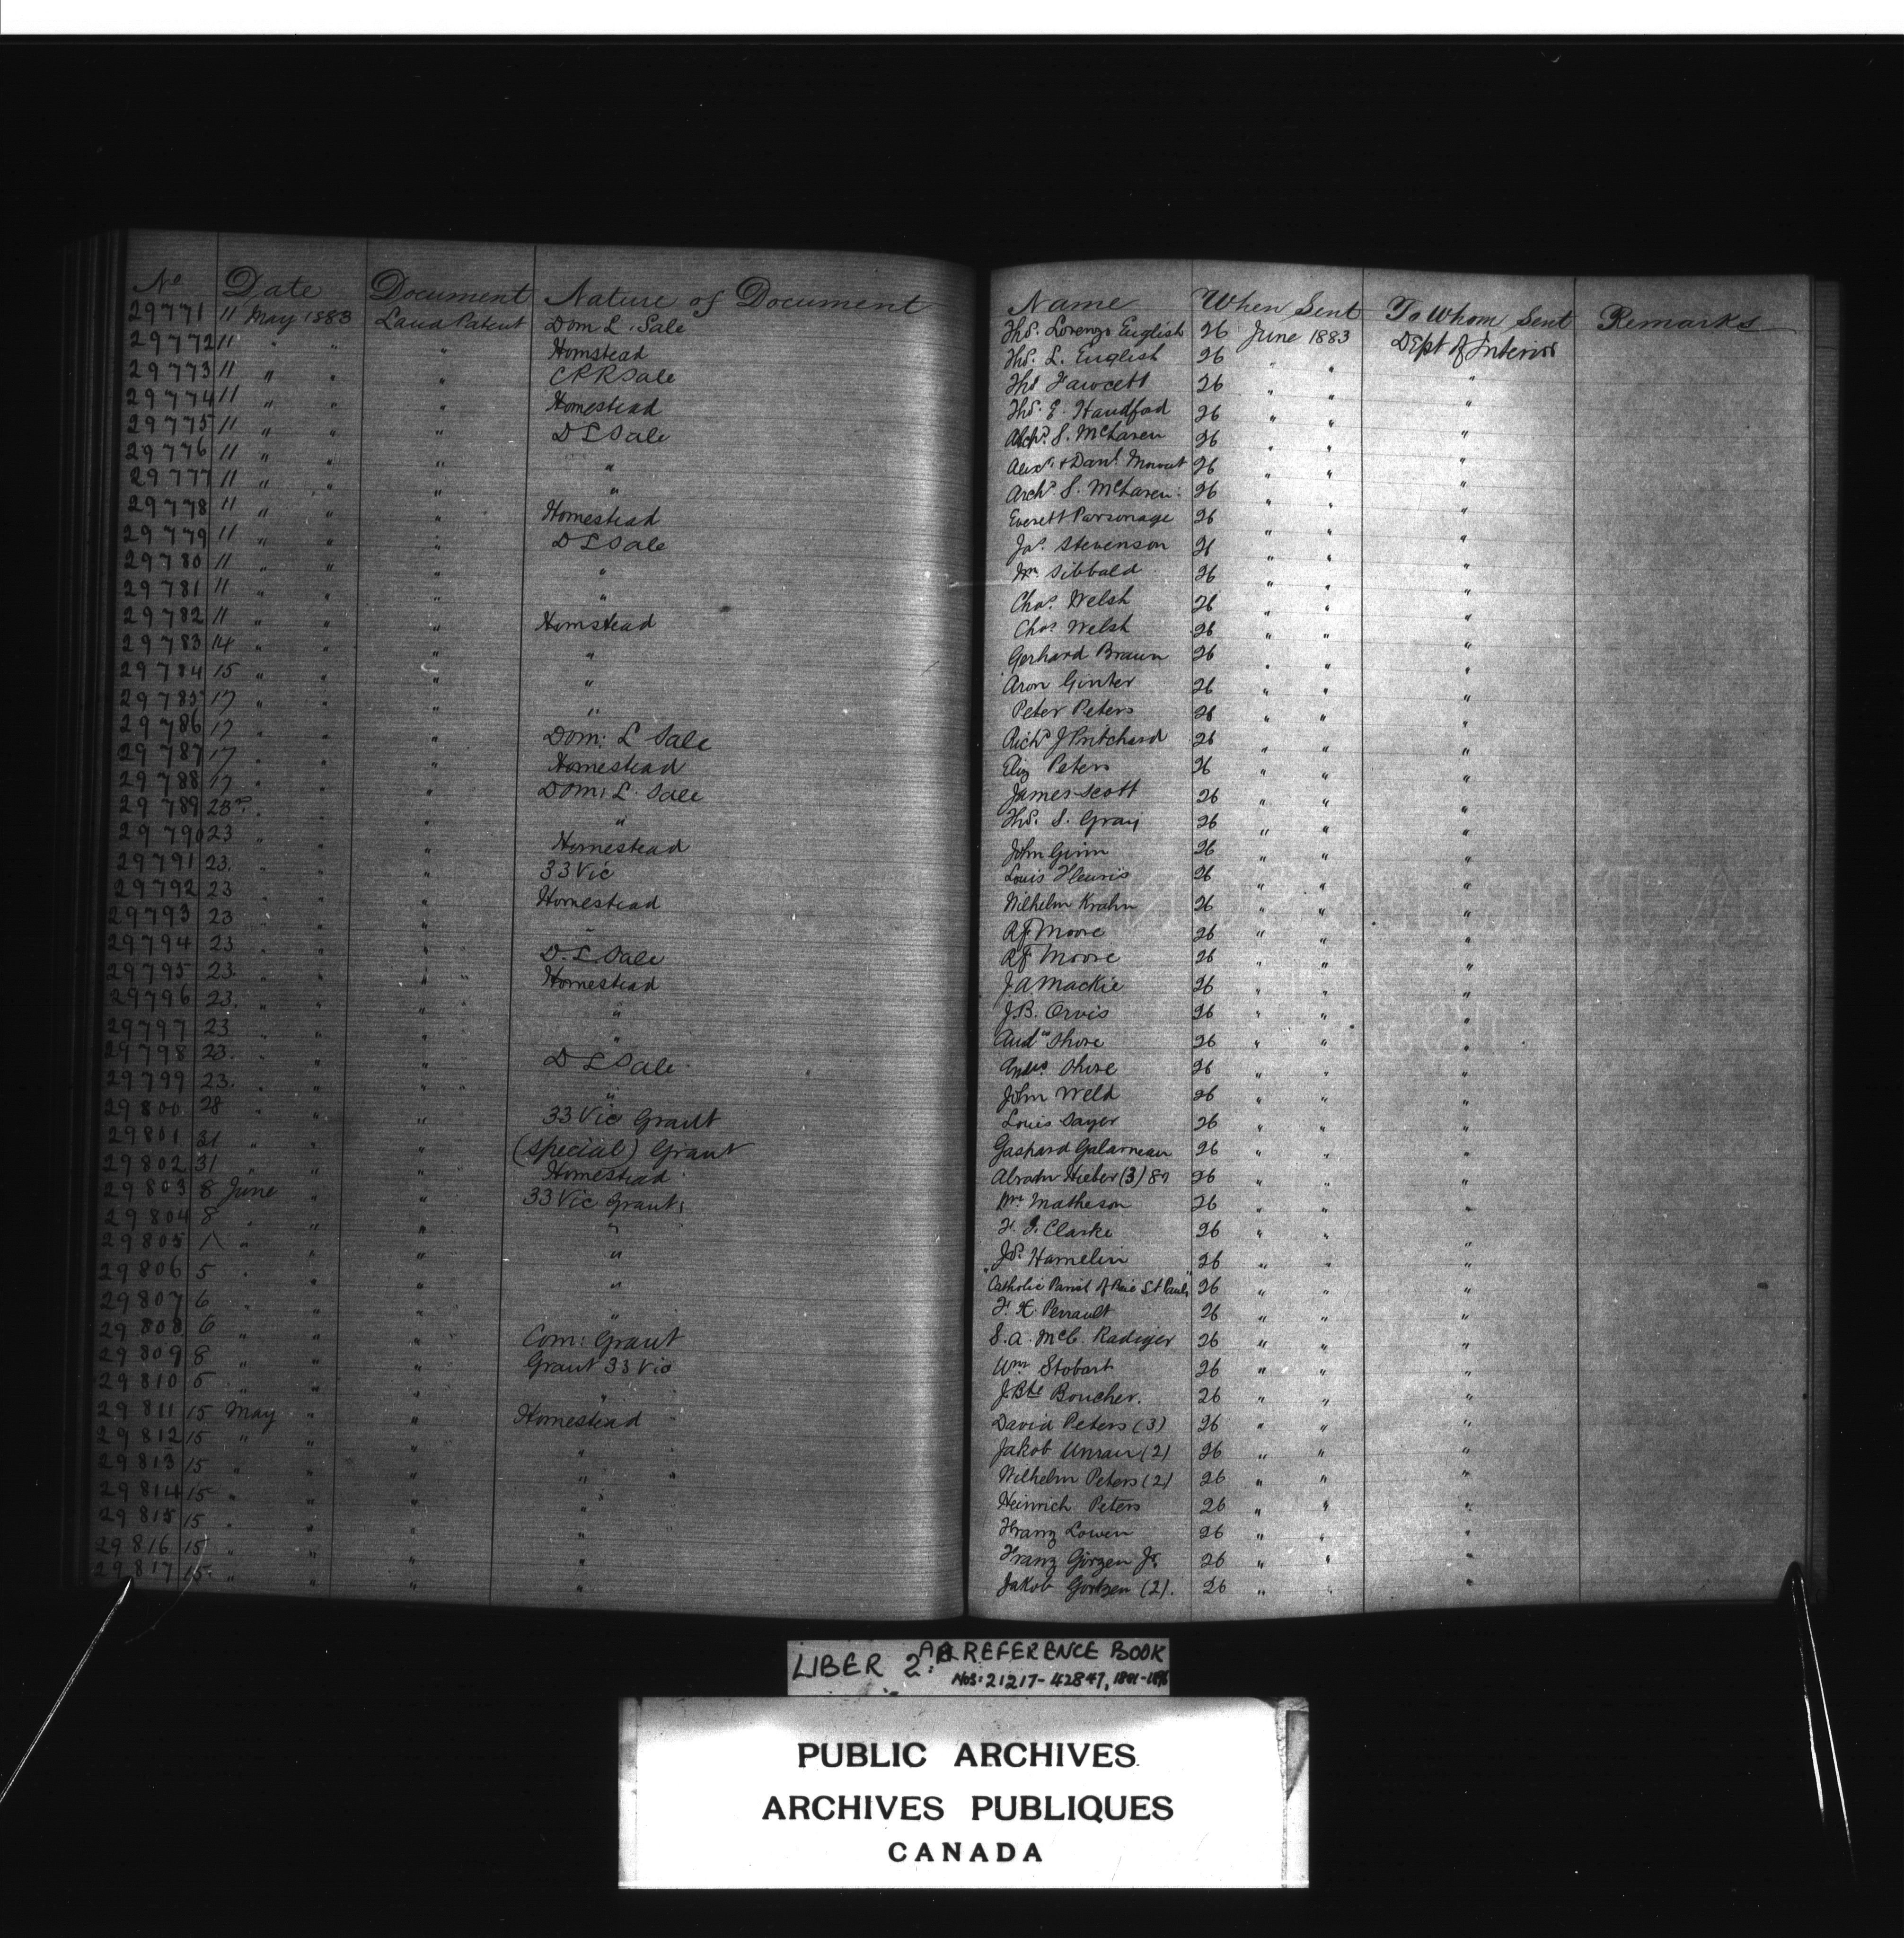 No Date Document Nature of Document Name When Sent To Whom Sent Remarks
29771 11 May 1883 Land Patent Dom L. Sale Thos. Lorenzo English 26 June 1883 Dept of Interior
29772 11 " " " Homstead Thos. L. English 26 " " "
29773 11 " " " CPR Sale Thos Fawcett 26 " " "
29774 11 " " " Homestead Thos. E. Handford 26 " " "
29775 11 " " " D L Sale Archd. S. McLaren 26 " " "
29776 11 " " " " Alexr. & Danl. Mowat 26 " " "
29777 11 " " " " Archd S. McLaren 26 " " "
29778 11 " " " Homestead Everett Parsonage 26 " " "
29779 11 " " " D L Sale Jas. Stevenson 26 " " "
29780 11 " " " " Wm Sibbald 26 " " "
29781 11 " " " " Chas. Welsh 26 " " "
29782 11 " " " Homstead Chas Welsh 26 " " "
29783 14 " " " " Gerhard Braun 26 " " "
29784 15 " " " " Aron Ginter 26 " " "
29785 17 " " " " Peter Peters 26 " " "
29786 17 " " " Dom: L Sale Richd J Pritchard 26 " " "
29787 17 " " " Homestead Eliz Peters 26 " " "
29788 17 " " " Dom: L. Sale James Scott 26 " " "
29789 23rd " " " " Thos. S. Gray 26 " " "
29790 23 " " " Homestead John Ginn 26 " " "
29791 23. " " " 33 Vic Louis Fleuris 26 " " "
29792 23 " " " Homestead Wilhelm Krahn 26 " " "
29793 23 " " " " R F Moore 26 " " "
29794 23 " " " D. L Sale R F Moore 26 " " "
29795 23 " " " Homestead J A Mackie 26 " " "
29796 23. " " " " J. B. Orvis 26 " " "
29797 23 " " " " Andw Shore 26 " " "
29798 23. " " " D L Sale Andw. Shore 26 " " "
29799 23. " " " " John Weld 26 " " "
29800 28 " " " 33 Vic Grant Louis Sayer 26 " " "
29801 31 " " " (Special) Grant Gaspard Galarneau 26 " " "
29802 31 " " " Homestead Abram Hieber (3) 87 26 " " "
29803 8 June " " 33 Vic Grant Wm Matheson 26 " " "
29804 8 " " " " F. J. Clarke 26 " " "
29805 1 " " " " Jos. Hamelin 26 " " "
29806 5 " " " " "Catholic Parish of Baie St Paul" 26 " " "
29807 6 " " " " F. X. Perrault 26 " " "
29808 6 " " " Com: Grant S. A. McC. Radiger 26 " " "
29809 8 " " " Grant 33 Vic Wm Stobart 26 " " "
29810 5 " " " " J. Bte Boucher. 26 " " "
29811 15 May " " Homestead David Peters (3) 26 " " "
29812 15 " " " " Jakob Unrau (2) 26 " " "
29813 15 " " " " Wilhelm Peters (2) 26 " " "
29814 15 " " " " Heinrich Peters 26 " " "
29815 15 " " " " Franz Lowen 26 " " "
29816 15 " " " " Franz Görzen Jr. 26 " " "
29817 15 " " " " Jakob Gortzen (2). 26 " " "
LIBER 2: REFERENCE BOOK
Nos: 21217-42847,
PUBLIC ARCHIVES
ARCHIVES PUBLIQUES
CANADA